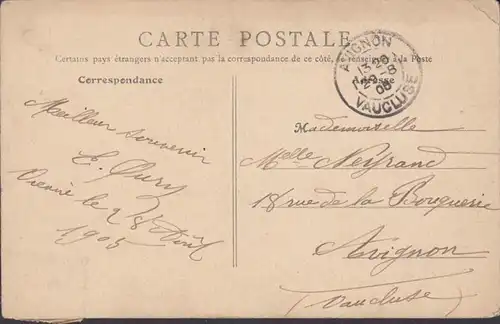 CARTE POSTALE
Certains pays étrangers n'acceptant pas la correspondance de ce côté, se renseigner à la Poste
Correspondance
Adresse
AVIGNON
VAUCLUSE
Meilleur souvenir
Vienne le 28 Août
1905
Mademoiselle
Melle Neyrand
18 rue de la Bouquerie
Avignon
(Vaucluse)